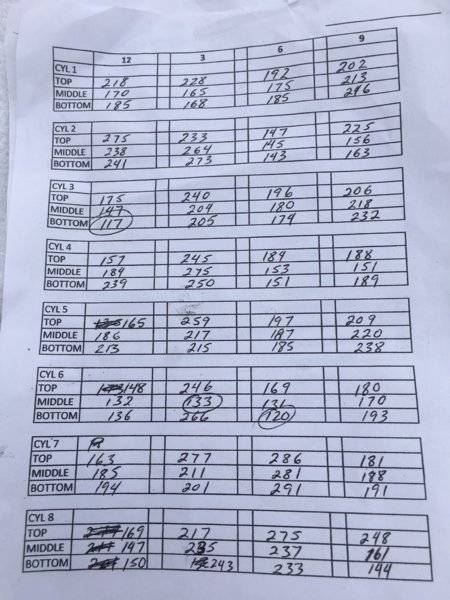 12 3 6 9
CYL 1
TOP 218 228 192 202
MIDDLE 170 165 175 213
BOTTOM 185 168 185 216
CYL 2
TOP 275 233 147 225
MIDDLE 238 264 145 156
BOTTOM 241 273 143 163
CYL 3
TOP 175 240 196 206
MIDDLE 147 209 180 218
BOTTOM 117 205 179 232
CYL 4
TOP 157 245 189 188
MIDDLE 189 275 153 151
BOTTOM 239 250 151 189
CYL 5
TOP 165 259 197 209
MIDDLE 186 217 187 220
BOTTOM 213 215 185 238
CYL 6
TOP 148 246 169 180
MIDDLE 132 133 131 170
BOTTOM 136 266 120 193
CYL 7
TOP 163 277 286 181
MIDDLE 185 211 281 188
BOTTOM 194 201 291 191
CYL 8
TOP 169 217 275 248
MIDDLE 147 235 237 161
BOTTOM 150 243 233 144